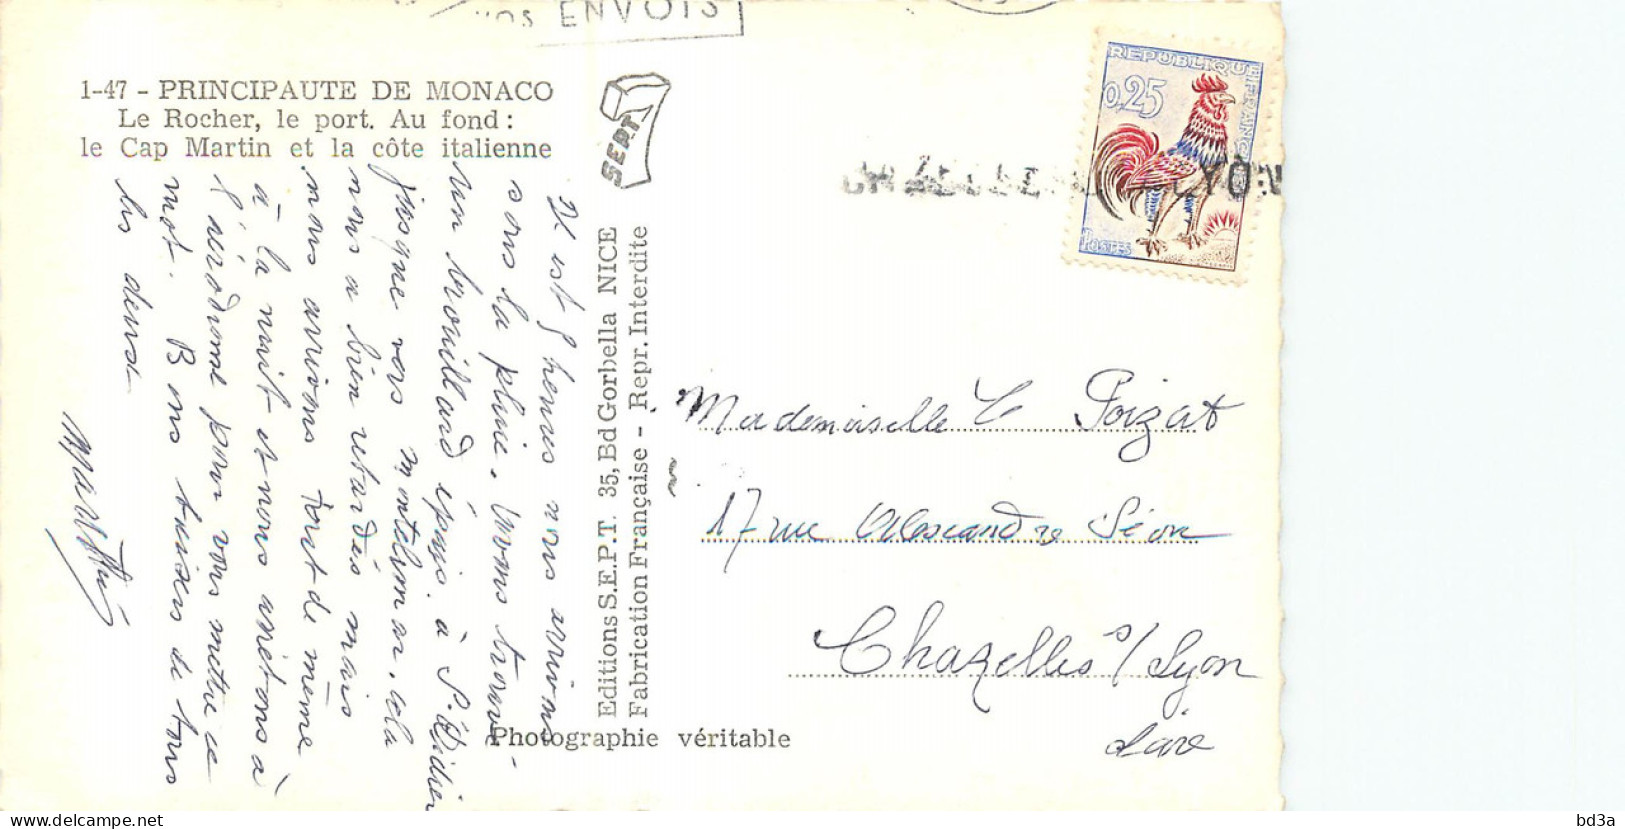 vos ENVOIS
1-47 - PRINCIPAUTE DE MONACO
Le Rocher, le port. Au fond :
le Cap Martin et la côte italienne
SEPT
REPUBLIQUE FRANÇ
0,25
POSTES
LYON
Il est 8 heures nous arrivons
sous la pluie. Nous trouv-
un brouillard épais à S. Didier
jusque vers Montelmar. cela
nous a bien retardés mais
nous arrivons tout de même
à la nuit et nous arrêtons à
l'aérodrome pour vous mettre ce
mot. Bons baisers de tous
les deux
Editions S.E.P.T. 35, Bd Gorbella NICE
Fabrication Française - Repr. Interdite
Photographie véritable
Mademoiselle C Poizat
17 rue Alexandre Séon
Chazelles s/Lyon
Loire
bd3a